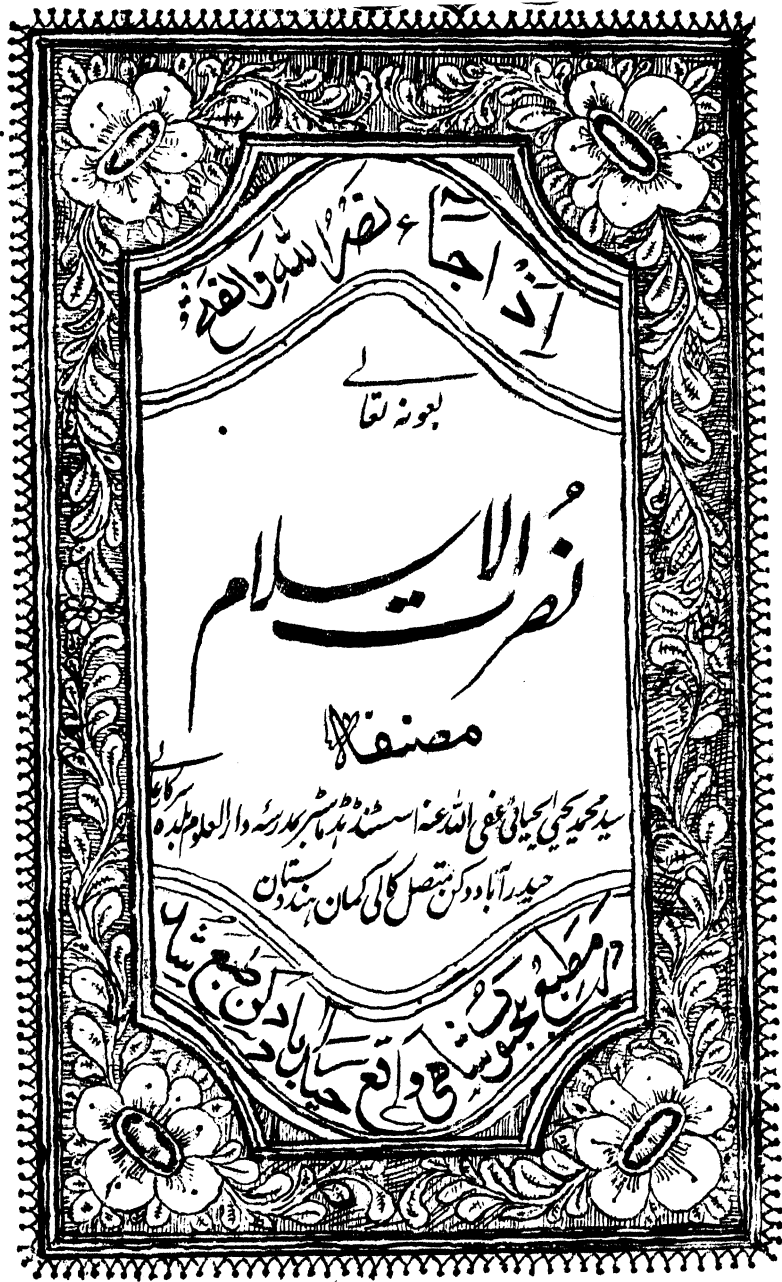 اِذَا جَآءَ نَصْرُ اللّٰهِ وَالْفَتْحُ
بعونہ تعالے
نُصرت الاسلام
مصنفۂ
سید محمد یحیی الحیائی عفی اللہ عنہ اسسٹنڈ ہڈ ماسٹر مدرسۂ دار العلوم بلدہ سرکار عالے
حیدرآباد دکن متصل کالی کمان ہندوستان
مطبع محبوب شاہی واقع حیدرآباد دکن طبع شد